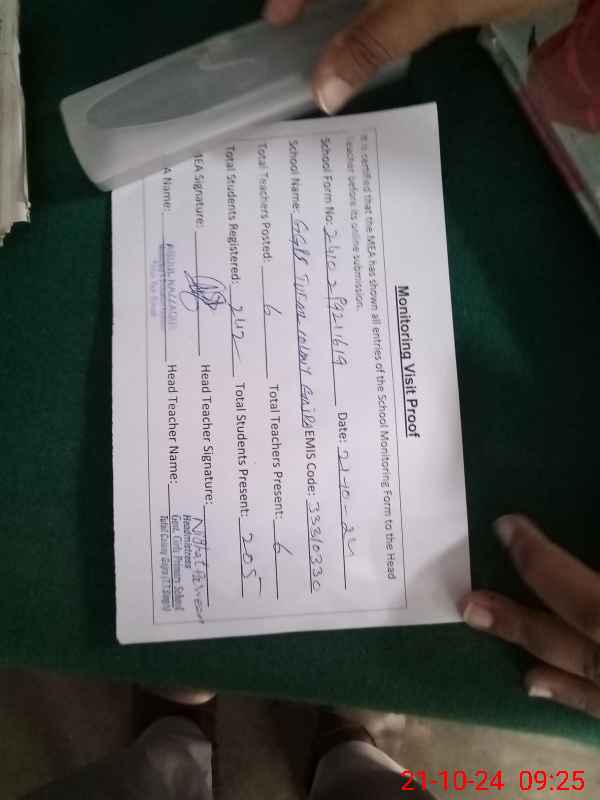 Monitoring Visit Proof
It is certified that the MEA has shown all entries of the School Monitoring Form to the Head
Teacher before its online submission.
School Form No: Date: 21-10-24
School Name: GGPS EMIS Code: 33310330
Total Teachers Posted: 6 Total Teachers Present: 6
Total Students Registered: 242 Total Students Present: 205
MEA Signature: Head Teacher Signature:
A Name: Head Teacher Name:
Headmistress
Govt. Girls Primary School
21-10-24 09:25